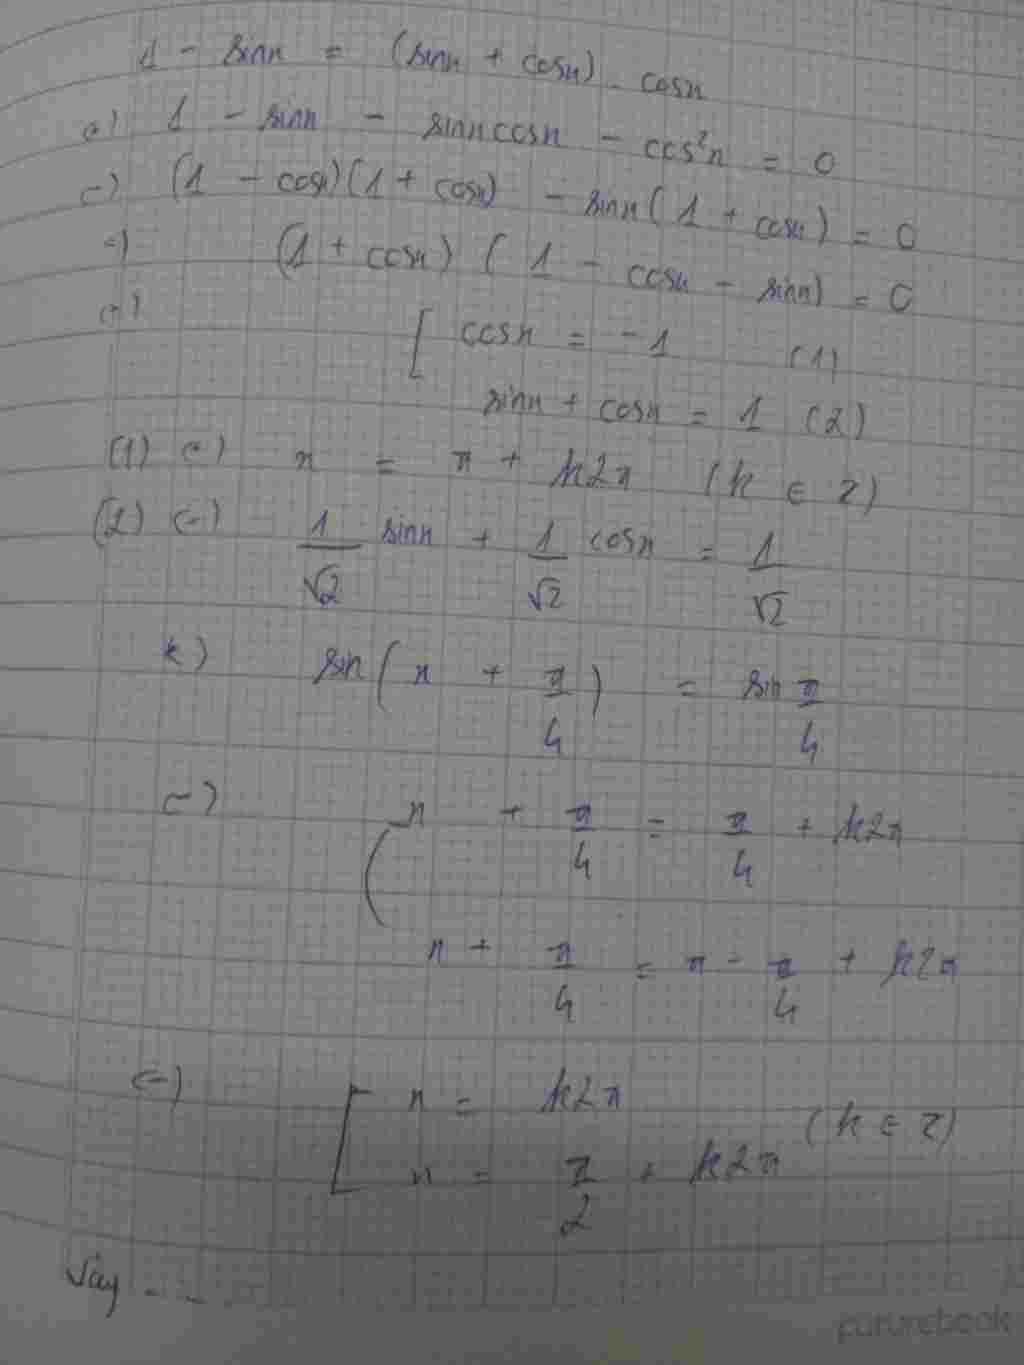 1 - sinx = (sinx + cosx) . cosx
(=) 1 - sinx - sinxcosx - cos²x = 0
(=) (1 - cosx)(1 + cosx) - sinx(1 + cosx) = 0
(=) (1 + cosx) (1 - cosx - sinx) = 0
(=) [ cosx = -1 (1)
sinx + cosx = 1 (2)
(1) (=) x = π + k2π (k ∈ Z)
(2) (=) 1/√2 sinx + 1/√2 cosx = 1/√2
(=) sin(x + π/4) = sin π/4
(=) [ x + π/4 = π/4 + k2π
x + π/4 = π - π/4 + k2π
(=) [ x = k2π
x = π/2 + k2π (k ∈ Z)
Vậy - - .
pururebook